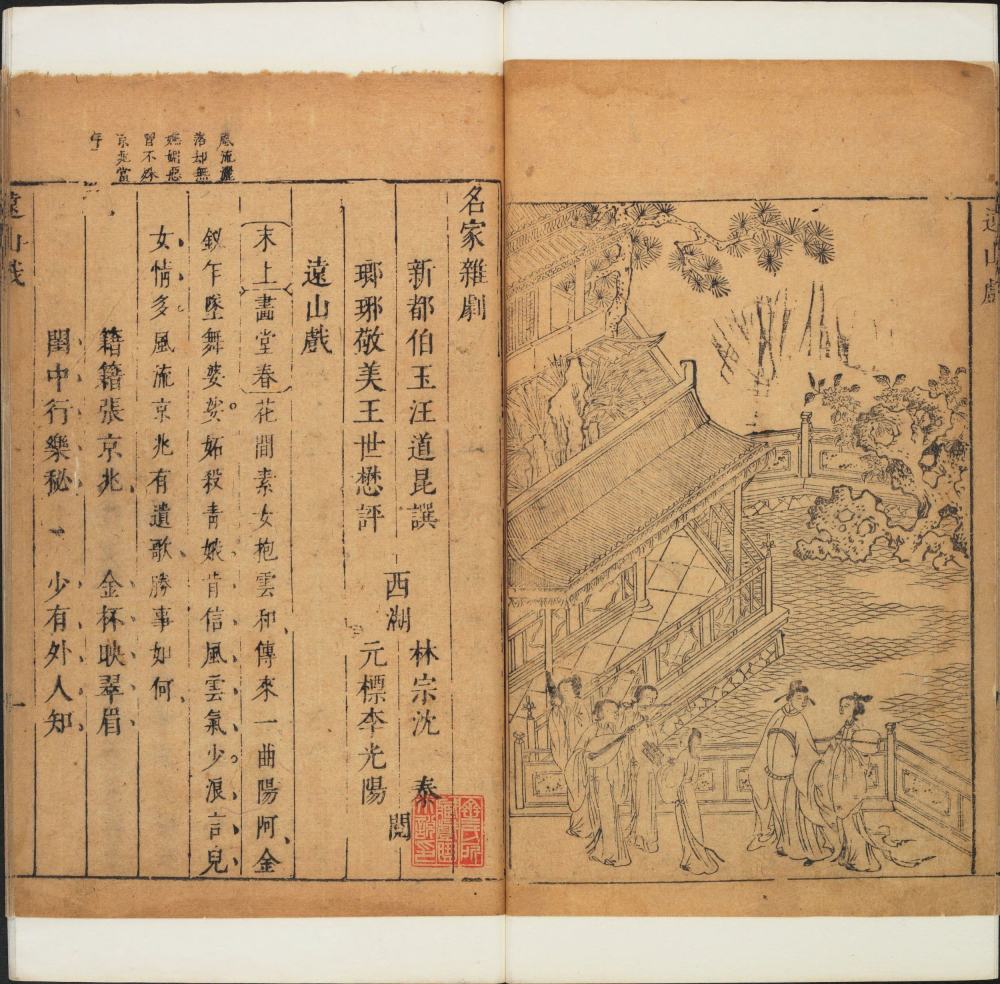 遠山戲
名家雜劇
新都伯玉汪道昆譔
瑯琊敬美王世懋評
西湖
林宗沈泰
元標李光陽
閱
遠山戲
末上畫堂春花間素女抱雲和傳來一曲陽阿金
釵乍墜舞婆娑。妬殺青娥肯信風雲氣少。浪言兒
女情多風流京兆有遺歌勝事如何
籍籍張京兆 金杯映翠眉
閨中行樂秘 少有外人知
風流灑
落却無
嫵媚惡
習不殊
京兆當
年
遠山戲
一